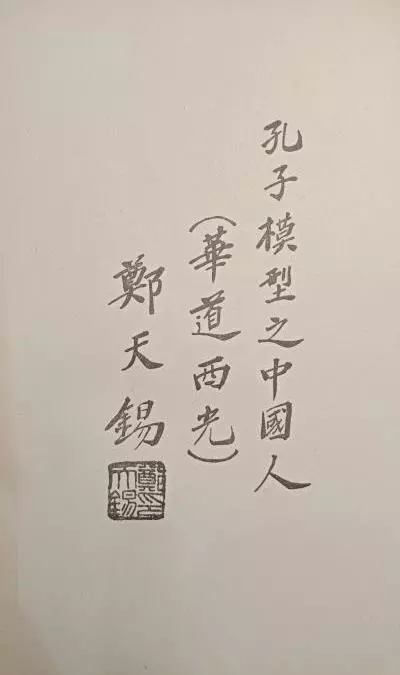 孔子模型之中國人
（華道西光）
鄭天錫
鄭天錫印